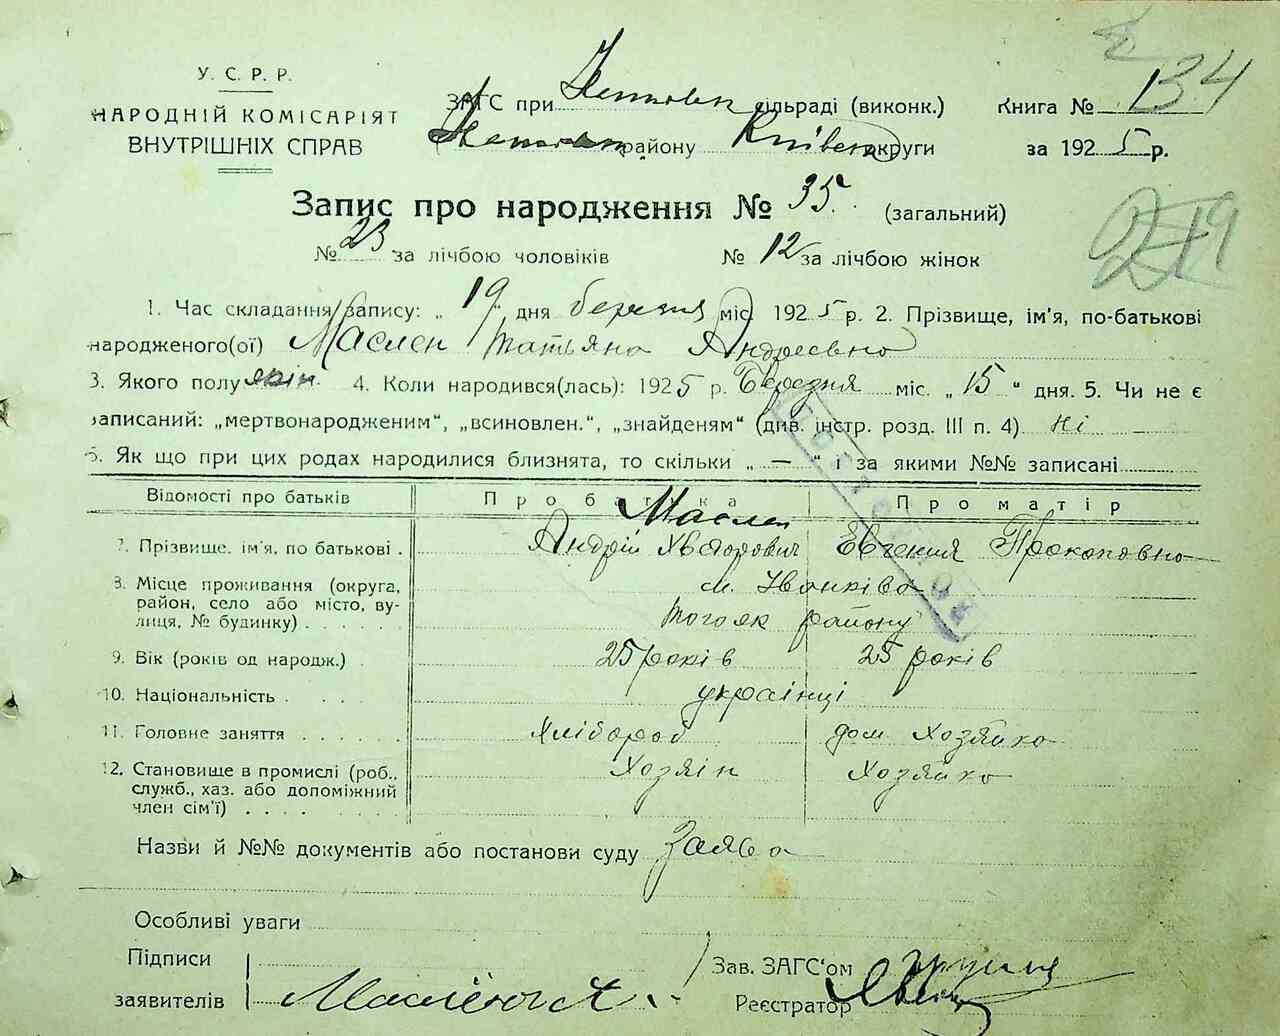 У. С. Р. Р.
НАРОДНІЙ КОМІСАРІЯТ
ВНУТРІШНІХ СПРАВ
ЗАГС при сільраді (виконк.)
району Київск округи
Книга № 134
за 1925 р.
Запис про народження № 35. (загальний)
№ 23 за лічбою чоловіків № 12 за лічбою жінок
219
1. Час складання запису: „19“ дня березня міс. 1925 р. 2. Прізвище, ім'я, по-батькові
народженого(ої) Маслен Татьяна Андреевно
3. Якого полу жін. 4. Коли народився(лась): 1925 р. Березня міс. „15“ дня. 5. Чи не є
записаний: „мертвонародженим“, „всиновлен.“, „знайденям“ (див. інстр. розд. III п. 4) Ні
6. Як що при цих родах народилися близнята, то скільки „—“ і за якими №№ записані
Відомості про батьків Про батька Про матір
7. Прізвище, ім'я, по батькові . Маслен
Андрій Хведорович Евгения Прокоповно
8. Місце проживання (округа, район, село або місто, вулиця, № будинку) . . . . . м. Іванківа
того як району
9. Вік (років од народж.) . 25 років 25 років
10. Національність . . . . українці
11. Головне заняття . . . . . . Хлібороб дом. Хозяйко
12. Становище в промислі (роб.,
служб., хаз. або допоміжний
член сім'ї) . . . . . . . . Хозяін Хозяйко
Назви й №№ документів або постанови суду Заява
Особливі уваги
Підписи
заявителів
Зав. ЗАГС‘ом
Реєстратор